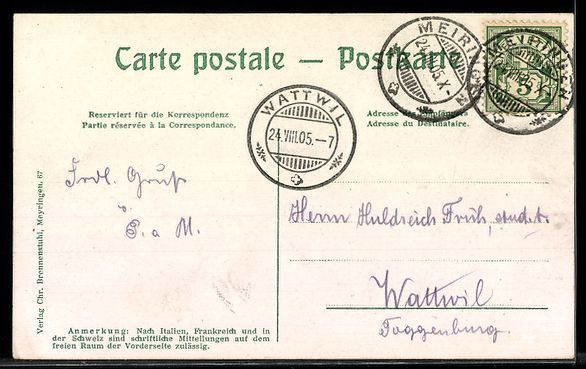 Carte postale — Postkarte
Reserviert für die Korrespondenz
Partie réservée à la Correspondance.
Adresse des Empfängers
Adresse du Destinataire.
MEIRINGEN
24.VIII.05.X-
MEIRINGEN
5
WATTWIL
24.VIII.05.–7
Frdl. Gruß
v.
P. a M.
Herrn Huldreich Früh, student.
Wattwil
Toggenburg.
Verlag Chr. Brennenstuhl, Meyringen. 67
Anmerkung: Nach Italien, Frankreich und in
der Schweiz sind schriftliche Mitteilungen auf dem
freien Raum der Vorderseite zulässig.